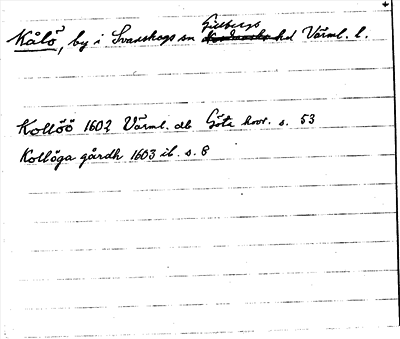 Kålö, by i Svanskogs sn Gillbergs hd Värml. l.
Kollöö 1602 Värml. ab Göta hovr. s. 53
Kollöga gårdh 1603 ib. s. 8